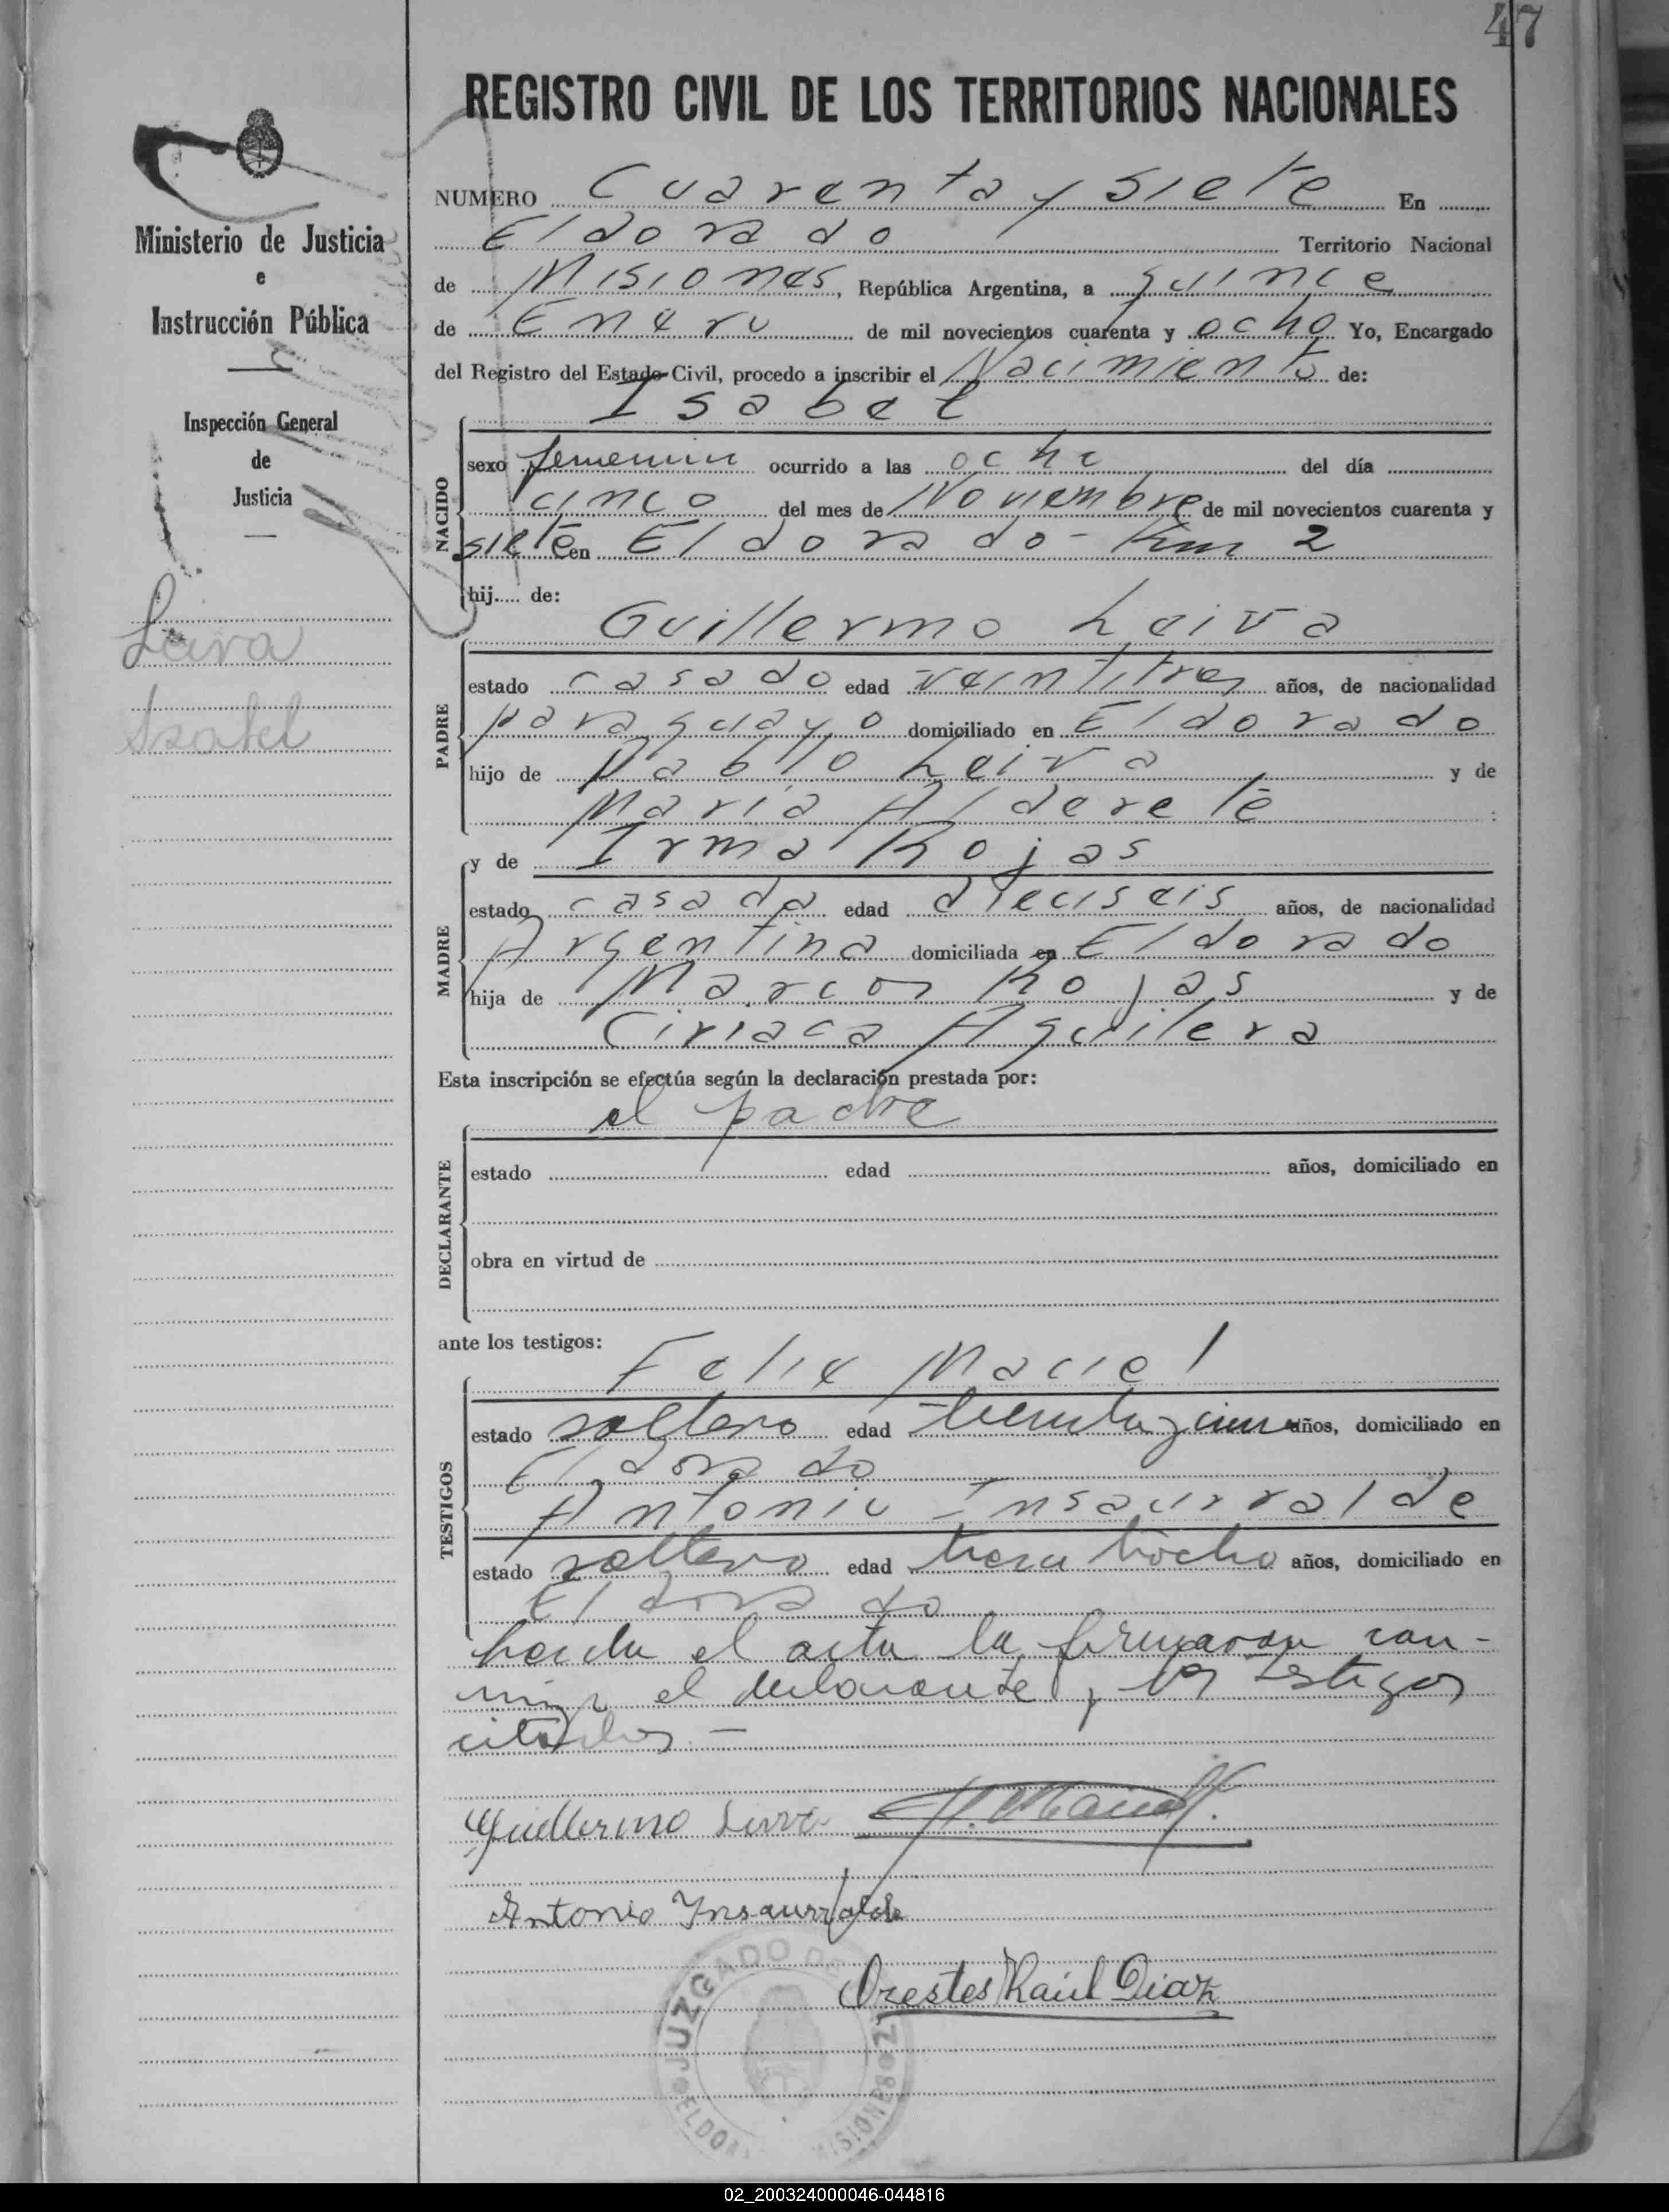 47
REGISTRO CIVIL DE LOS TERRITORIOS NACIONALES
Ministerio de Justicia
e
Instrucción Pública
Inspección General
de
Justicia
Leiva
Isabel
NUMERO Cuarenta y siete En
Eldorado Territorio Nacional
de Misiones, República Argentina, a quince
de Enero de mil novecientos cuarenta y ocho Yo, Encargado
del Registro del Estado Civil, procedo a inscribir el Nacimiento de:
Isabel
NACIDO
sexo femenino ocurrido a las ocho del día
cinco del mes de Noviembre de mil novecientos cuarenta y
siete en Eldorado - Km 2
hij..... de:
Guillermo Leiva
PADRE
estado casado edad veintitres años, de nacionalidad
paraguayo domiciliado en Eldorado
hijo de Pablo Leiva y de
Maria Alderete
y de Irma Rojas
MADRE
estado casada edad dieciseis años, de nacionalidad
Argentina domiciliada en Eldorado
hija de Marcos Rojas y de
Ciriaca Aguilera
Esta inscripción se efectúa según la declaración prestada por:
el padre
DECLARANTE
estado edad años, domiciliado en
obra en virtud de
ante los testigos:
Felix Maciel
TESTIGOS
estado soltero edad treinta y cinco años, domiciliado en
Eldorado
Antonio Insaurralde
estado soltero edad treintiocho años, domiciliado en
Eldorado
Leida el acta la firmaron con-
migo el declarante y los testigos
citados -
Guillermo Leiva F. Maciel
Antonio Ynsaurralde
Orestes Raúl Diaz
JUZGADO DE
ELDO
MISIONES
02_200324000046-044816